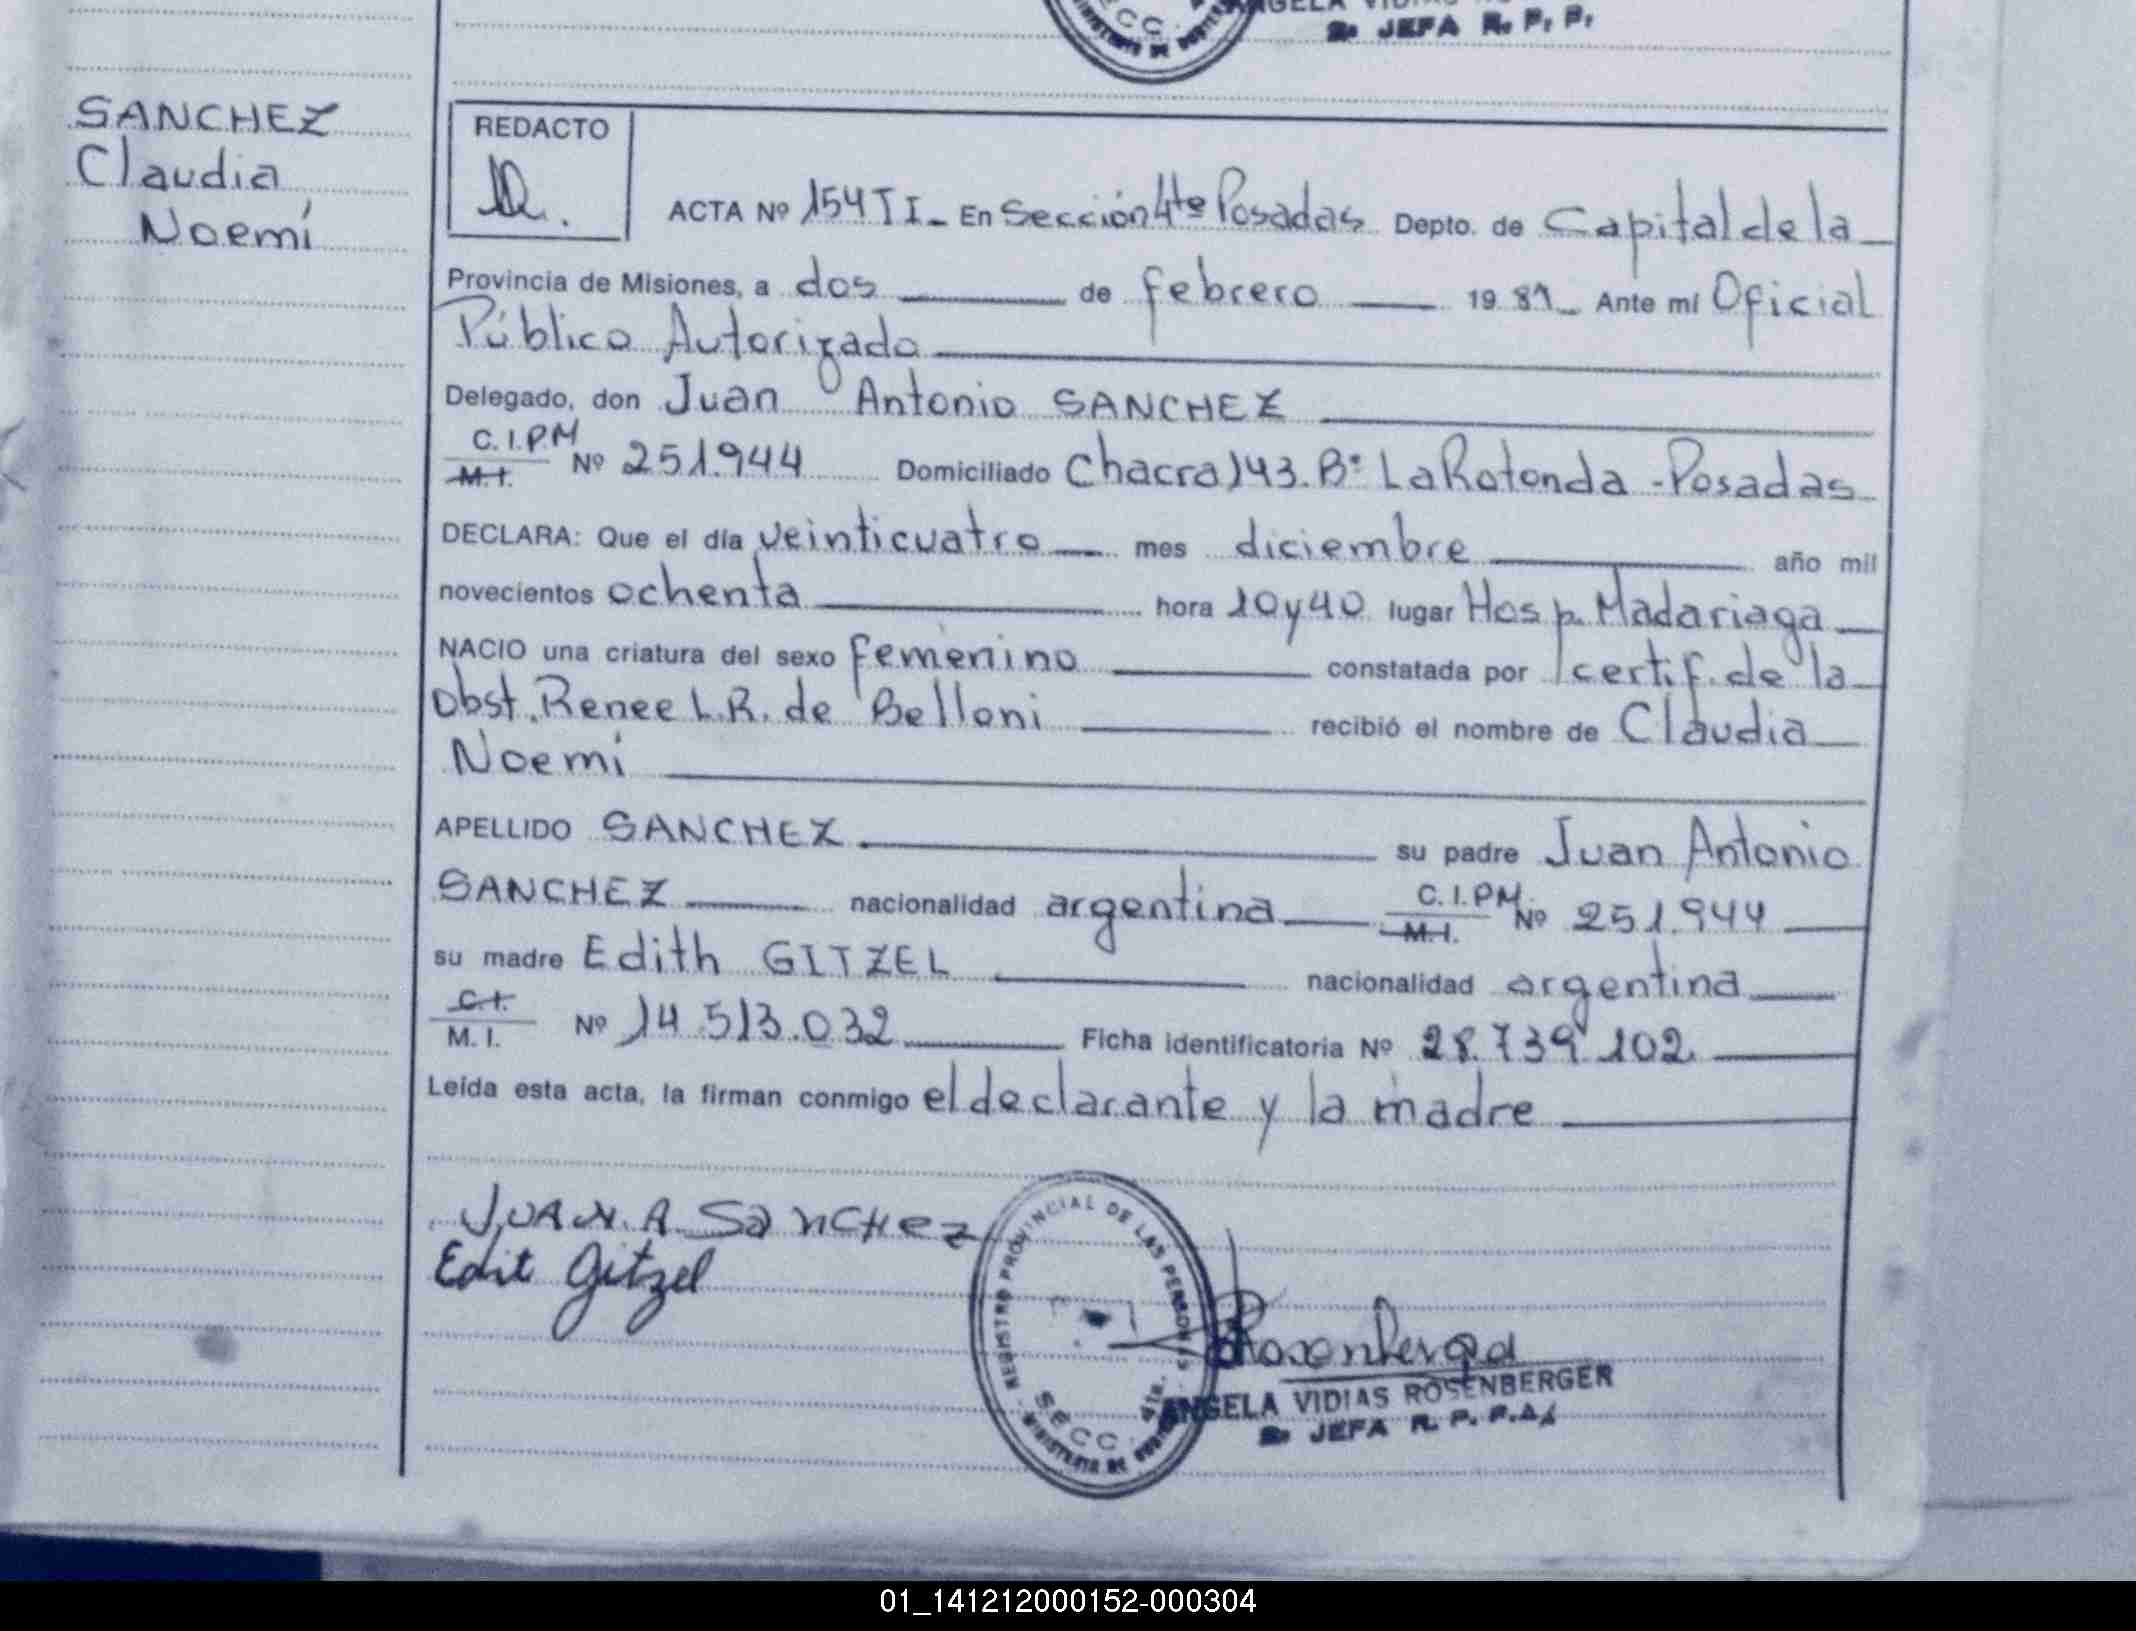 2a JEFA R. P. P.
SANCHEZ
Claudia
Noemí
REDACTO
ACTA Nº 154 T I - En Sección 4tª Posadas Depto. de Capital de la
Provincia de Misiones, a dos de febrero 19 81 Ante mí Oficial
Público Autorizado
Delegado, don Juan Antonio SANCHEZ
C.I.P.M
M.I. Nº 251.944 Domiciliado Chacra 143. Bº La Rotonda - Posadas
DECLARA: Que el día veinticuatro mes diciembre año mil
novecientos ochenta hora 10 y 40 lugar Hosp. Madariaga
NACIO una criatura del sexo femenino constatada por certif. de la
Obst. Renee L.R. de Belloni recibió el nombre de Claudia
Noemí
APELLIDO SANCHEZ su padre Juan Antonio
SANCHEZ nacionalidad argentina C.I.PM. M.I. Nº 251.944
su madre Edith GITZEL nacionalidad argentina
C.I.
M.I. Nº 14.513.032 Ficha identificatoria Nº 28.739.102
Leída esta acta, la firman conmigo el declarante y la madre
JUAN.A SanCHez
Edit Gitzel
REGISTRO PROVINCIAL DE LAS PERSONAS
SECC. 4ta.
MINISTERIO DE
ANGELA VIDIAS ROSENBERGER
2a JEFA R. P. P.
01_141212000152-000304